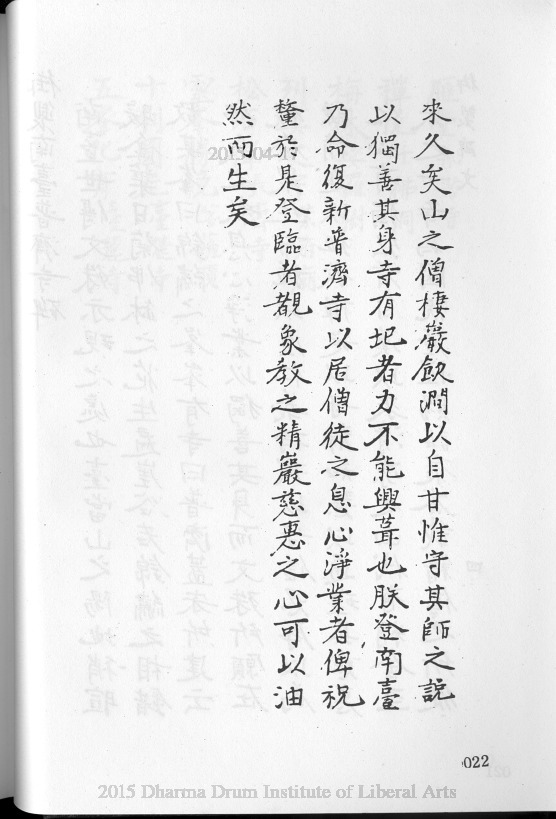 來久矣山之僧棲巖飲澗以自甘惟守其師之說
以獨善其身寺有圮者力不能興葺也朕登南臺
乃命復新普濟寺以居僧徒之息心淨業者俾祝
釐於是登臨者覩象教之精嚴慈惠之心可以油
然而生矣
022
2015 Dharma Drum Institute of Liberal Arts